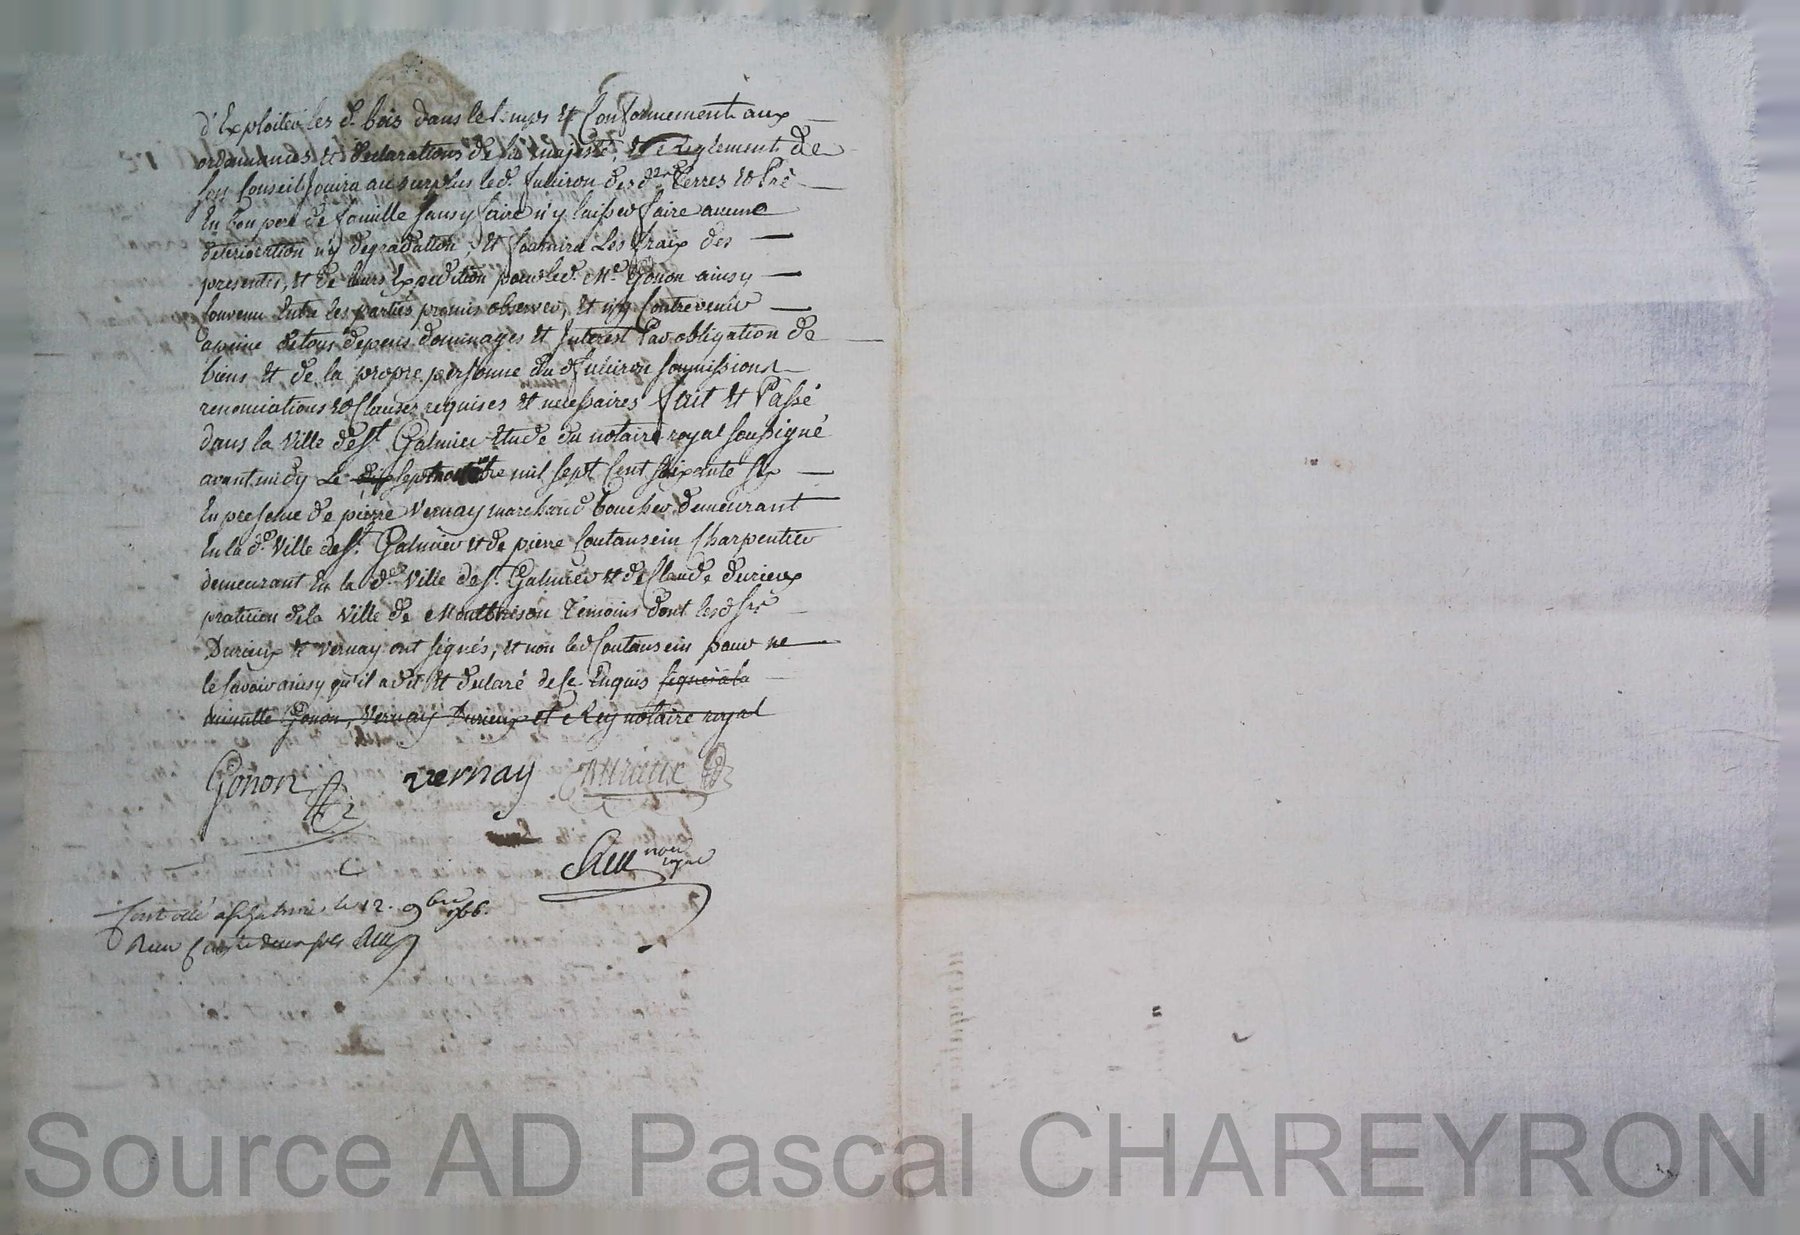 d'Exploiter les d. bois dans le temps et Conformement aux
ordonnances et declarations de sa majesté, et Reglement de
son Conseil Jouira au surplus led. Juliron des d. Terres et Pré
En bon pere de famille sans y faire n'y laisser faire aucune
deterioration n'y degradation et fournira Les fraix des
presentes, et de leurs Expedition pour led. Me Gonon ainsy
Convenu Entre les parties promis observer, et n'y Contrevenir
a peine de tous depens dommages et Interest Par obligation de
biens et de la propre personne du d. Juliron soumissions
renonciations et Clauses requises et necessaires fait et Passé
dans la Ville de St. Galmier Etude du notaire royal soussigné
avant midy Le mil sept Cent soixante six
En presence de pierre Vernay marchand boucher demeurant
En la d. Ville de St. Galmier et de pierre Coutansein Charpentier
demeurant En la d. Ville de St. Galmier et de Claude durieux
praticien de la Ville de Montbrison Témoins dont les d. srs
Durieux et Vernay ont signés, et non led Coutansein pour ne
le savoir ainsy qu'il a dit et declaré de ce Enquis signé à la
minutte Gonon, Vernay Durieux et Rey notaire royal
Gonon vernay Durieux
nore royal
Controllé a St galmier le 12. 9bre 1766.
Reçu
Source AD Pascal CHAREYRON